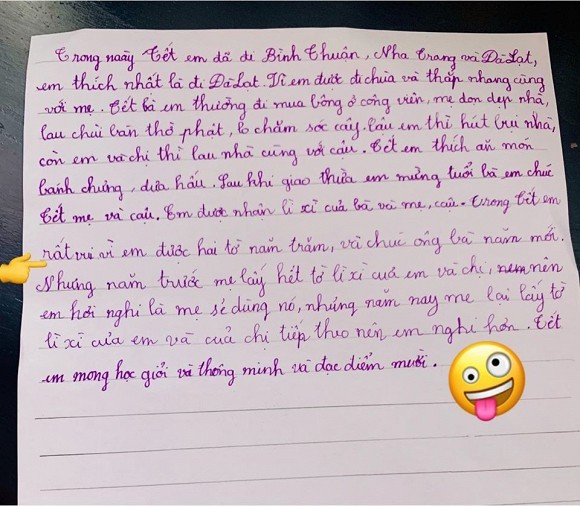 Trong ngày Tết em đã đi Bình Thuận, Nha Trang và Đà Lạt,
em thích nhất là đi Đà Lạt. Vì em được đi chùa và thắp nhang cùng
với mẹ. Tết bà em thường đi mua bông ở công viên, mẹ dọn dẹp nhà,
lau chùi bàn thờ phật, lo chăm sóc cây. Cậu em thì hút bụi nhà,
còn em và chị thì lau nhà cùng với cậu. Tết em thích ăn món
bánh chưng, dưa hấu. Sau khi giao thừa em mừng tuổi bà em chúc
Tết mẹ và cậu. Em được nhận lì xì của bà và mẹ, cậu. Trong Tết em
rất vui vì em được hai tờ năm trăm, và chúc ông bà năm mới.
Nhưng năm trước mẹ lấy hết tờ lì xì của em và chị, nên
em hơi nghi là mẹ sẽ dùng nó, nhưng năm nay mẹ lại lấy tờ
lì xì của em và của chị tiếp theo nên em nghi hơn. Tết
em mong học giỏi và thông minh và đạc điểm mười.